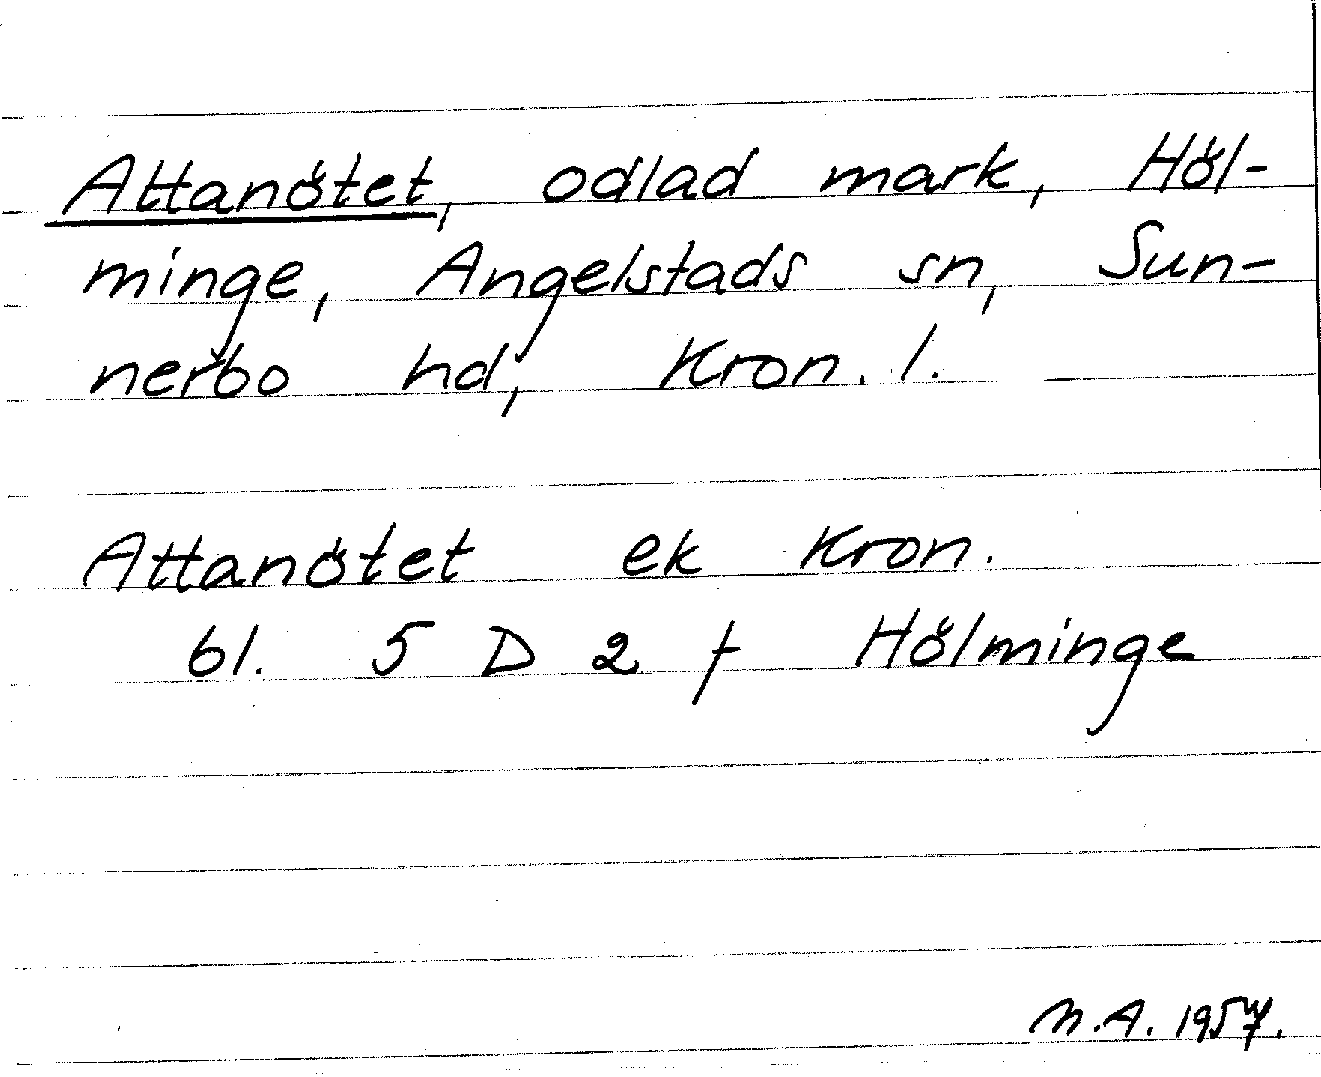 Attanötet, odlad mark, Höl-
minge, Angelstads sn, Sun-
nerbo hd, Kron. l.
Attanötet ek Kron.
bl. 5 D 2 f Hölminge
N.A. 1957.